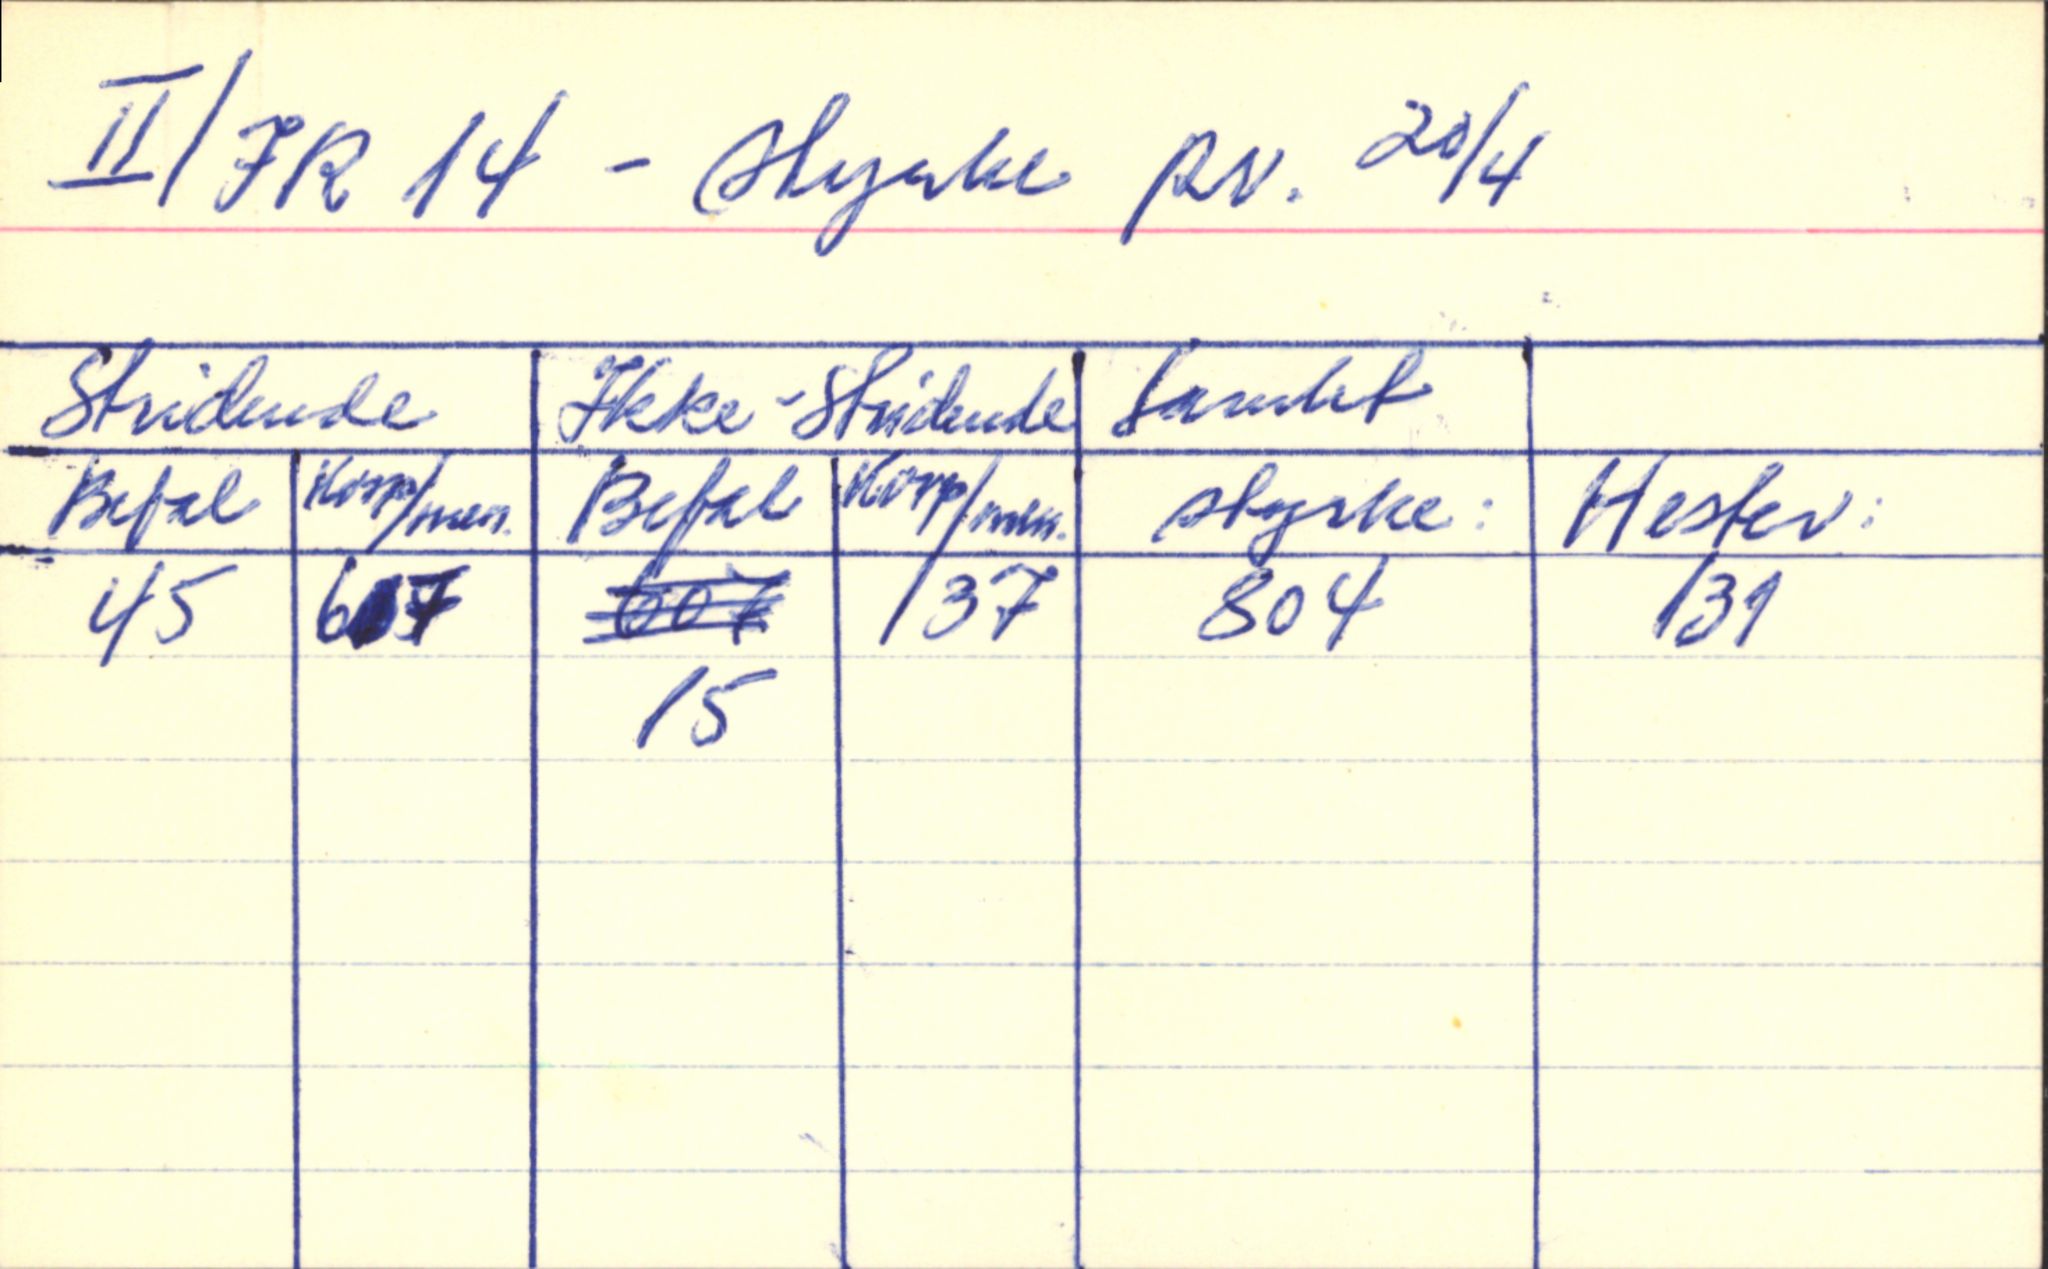 II/JR 14 - styrke pr. 20/4
Stridende Ikke-Stridende Samlet
Befal Korp/men. Befal Korp/men. styrke: Hester:
45 607 607 137 804 131
15